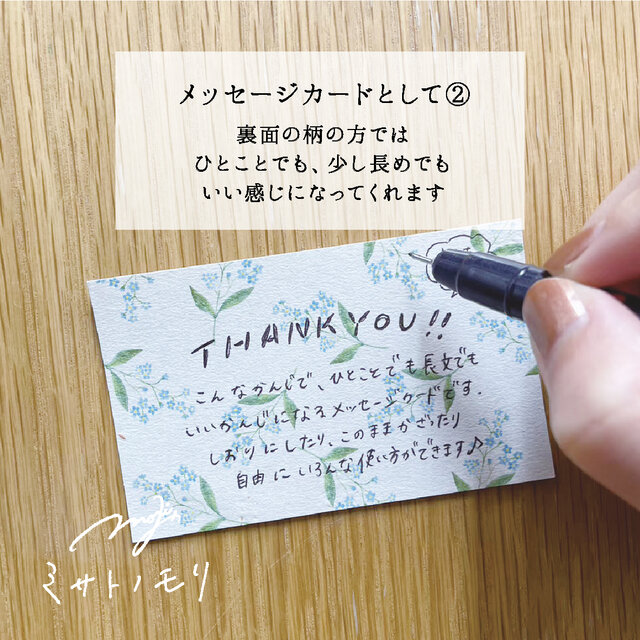 メッセージカードとして②
裏面の柄の方では
ひとことでも、少し長めでも
いい感じになってくれます
THANK YOU!!
こんなかんじで、ひとことでも長文でも
いいかんじになるメッセージカードです.
しおりにしたり、このままかざったり
自由にいろんな使い方ができます♪
ミサトノモリ